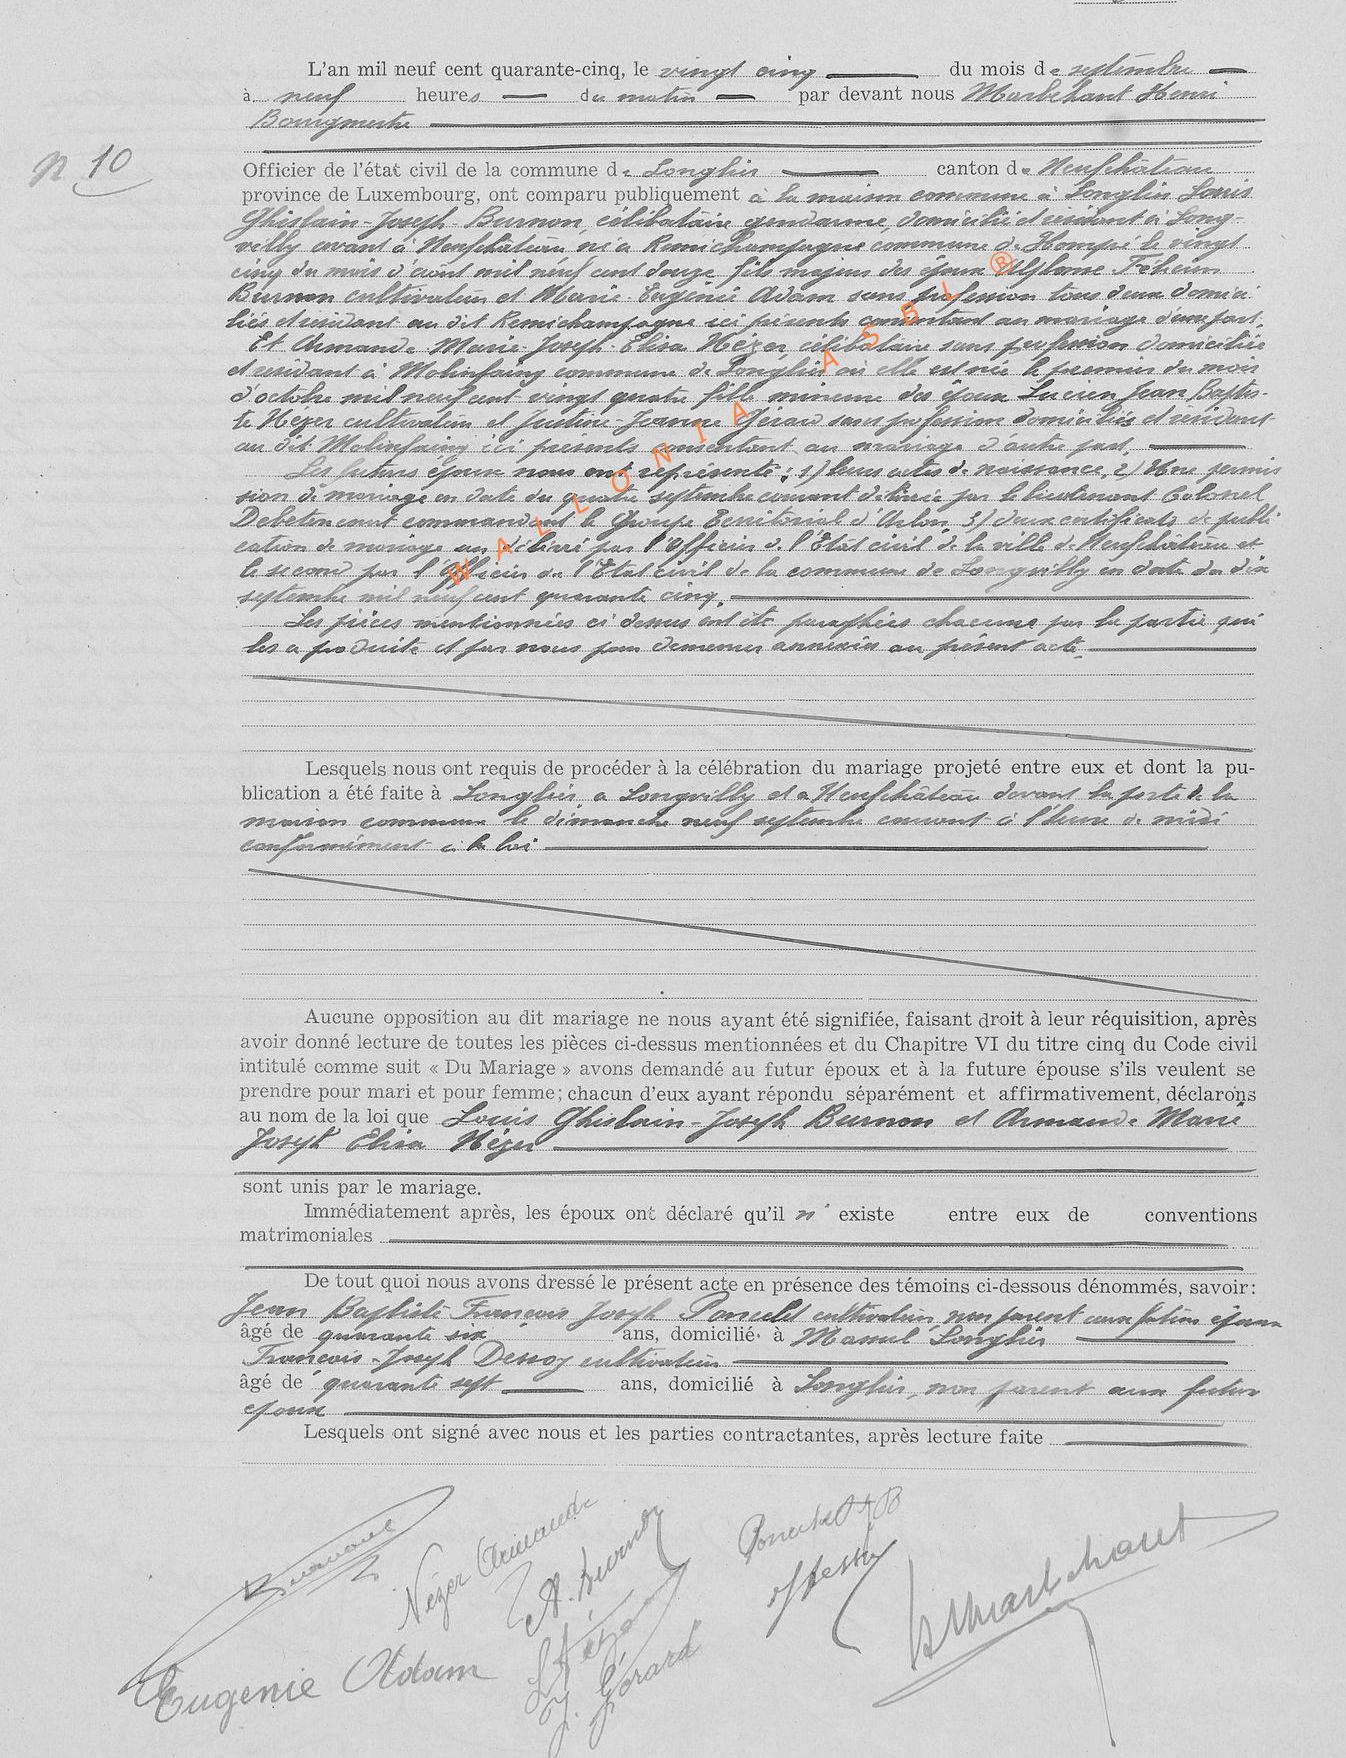 L'an mil neuf cent quarante-cinq, le vingt cinq du mois de septembre
à neuf heures du matin par devant nous Marlchant Henri
Bourgmestre
N 10
Officier de l'état civil de la commune de Longlier canton de Neufchâteau
province de Luxembourg, ont comparu publiquement à la maison commune à Longlier Louis
Ghislain-Joseph Burnon, célibataire gendarme, domicilié et résidant à Long-
villy avant à Neufchâteau né à Remichampagne commune de Hompré le vingt
cinq du mois d'août mil neuf cent douze fils majeur des époux Alphonse
Burnon cultivateur et Marie-Eugénie Adam sans profession tous deux domici
liés et résidant au dit Remichampagne ici présents consentant au mariage d'une part.
Et Armande Marie-Joseph-Elisa Nézer célibataire sans profession domiciliée
et résidant à Molinfaing commune de Longlier où elle est née le premier du mois
d'octobre mil neuf cent vingt quatre fille mineure des époux Lucien Jean Baptis-
te Nézer cultivateur et Justine-Jeanne Gérard sans profession domiciliés et résidant
au dit Molinfaing ici présents consentant au mariage d'autre part.
Les futurs époux nous ont représenté : 1) leurs actes de naissance, 2) Une permis
sion de mariage en date du quatre septembre courant délivrée par le lieutenant Colonel
Debetencourt commandant le Groupe Territorial d'Arlon 3) deux certificats de publi
cation de mariage un délivré par l'Officier de l'Etat civil de la ville de Neufchâteau et
le second par l'Officier de l'Etat civil de la commune de Longvilly en date du dix
septembre mil neuf cent quarante cinq.
Les pièces mentionnées ci dessus ont été paraphées chacune par la partie qui
les a produite et par nous pour demeurer annexées au présent acte
Lesquels nous ont requis de procéder à la célébration du mariage projeté entre eux et dont la pu-
blication a été faite à Longlier a Longvilly et a Neufchâteau devant la porte de la
maison commune le dimanche neuf septembre courant à l'heure de midi
conformément à la loi
Aucune opposition au dit mariage ne nous ayant été signifiée, faisant droit à leur réquisition, après
avoir donné lecture de toutes les pièces ci-dessus mentionnées et du Chapitre VI du titre cinq du Code civil
intitulé comme suit « Du Mariage » avons demandé au futur époux et à la future épouse s'ils veulent se
prendre pour mari et pour femme; chacun d'eux ayant répondu séparément et affirmativement, déclarons
au nom de la loi que Louis Ghislain-Joseph Burnon et Armande Marie
Joseph Elisa Nézer
sont unis par le mariage.
Immédiatement après, les époux ont déclaré qu'il n' existe entre eux de conventions
matrimoniales
De tout quoi nous avons dressé le présent acte en présence des témoins ci-dessous dénommés, savoir:
Jean Baptiste François Joseph Poncelet cultivateur non parent aux futurs époux
âgé de quarante six ans, domicilié à Massul Longlier
François-Joseph Dessoy cultivateur
âgé de quarante sept ans, domicilié à Longlier, non parent aux futur
époux
Lesquels ont signé avec nous et les parties contractantes, après lecture faite
Nézer Armande
A. Burnon
Poncelet JB
Eugenie Adam
L Nézer
J. Gérard
H Marlchant
WALLONIA ASBL ®